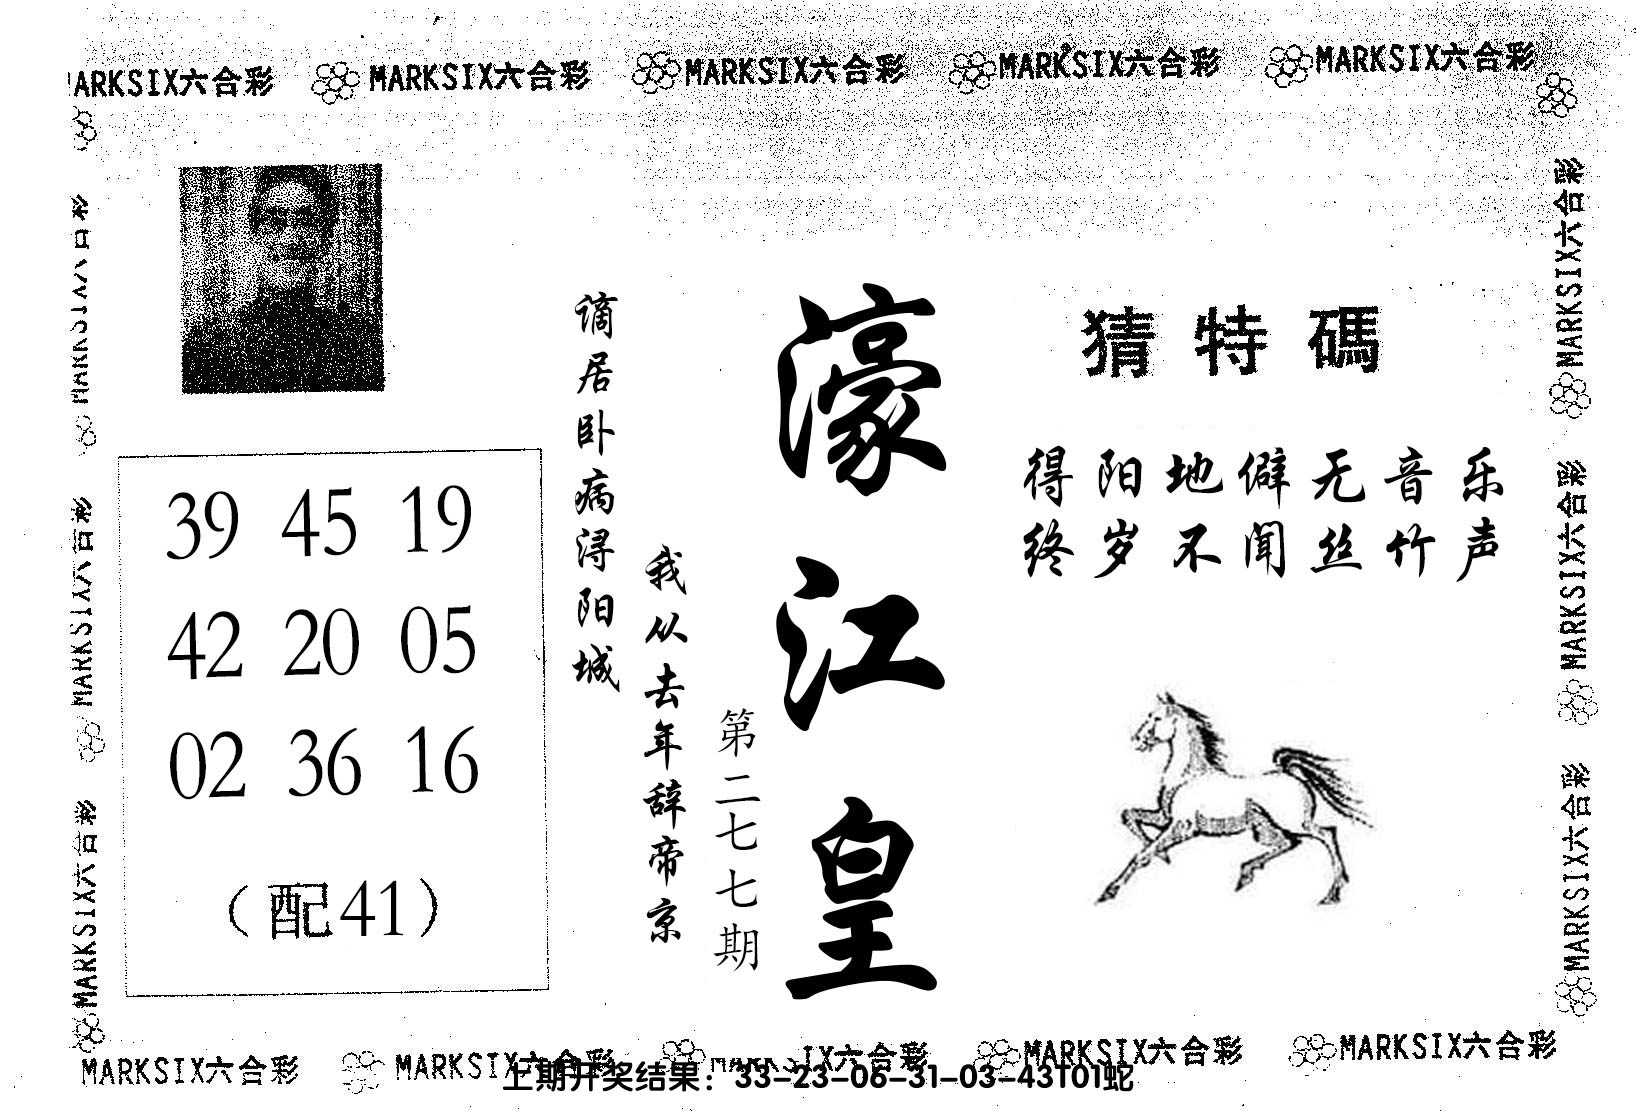 MARKSIX六合彩 MARKSIX六合彩 MARKSIX六合彩 MARKSIX六合彩 MARKSIX六合彩
猜特碼
得阳地僻无音乐
终岁不闻丝竹声
濠江皇
第二七七期
我从去年辞帝京
谪居卧病浔阳城
39 45 19
42 20 05
02 36 16
（配41）
MARKSIX六合彩
MARKSIX六合彩
MARKSIX六合彩
MARKSIX六合彩
MARKSIX六合彩
MARKSIX六合彩
MARKSIX六合彩 MARKSIX六合彩 MARKSIX六合彩 MARKSIX六合彩 MARKSIX六合彩
上期开奖结果：33-23-06-31-03-43T01蛇